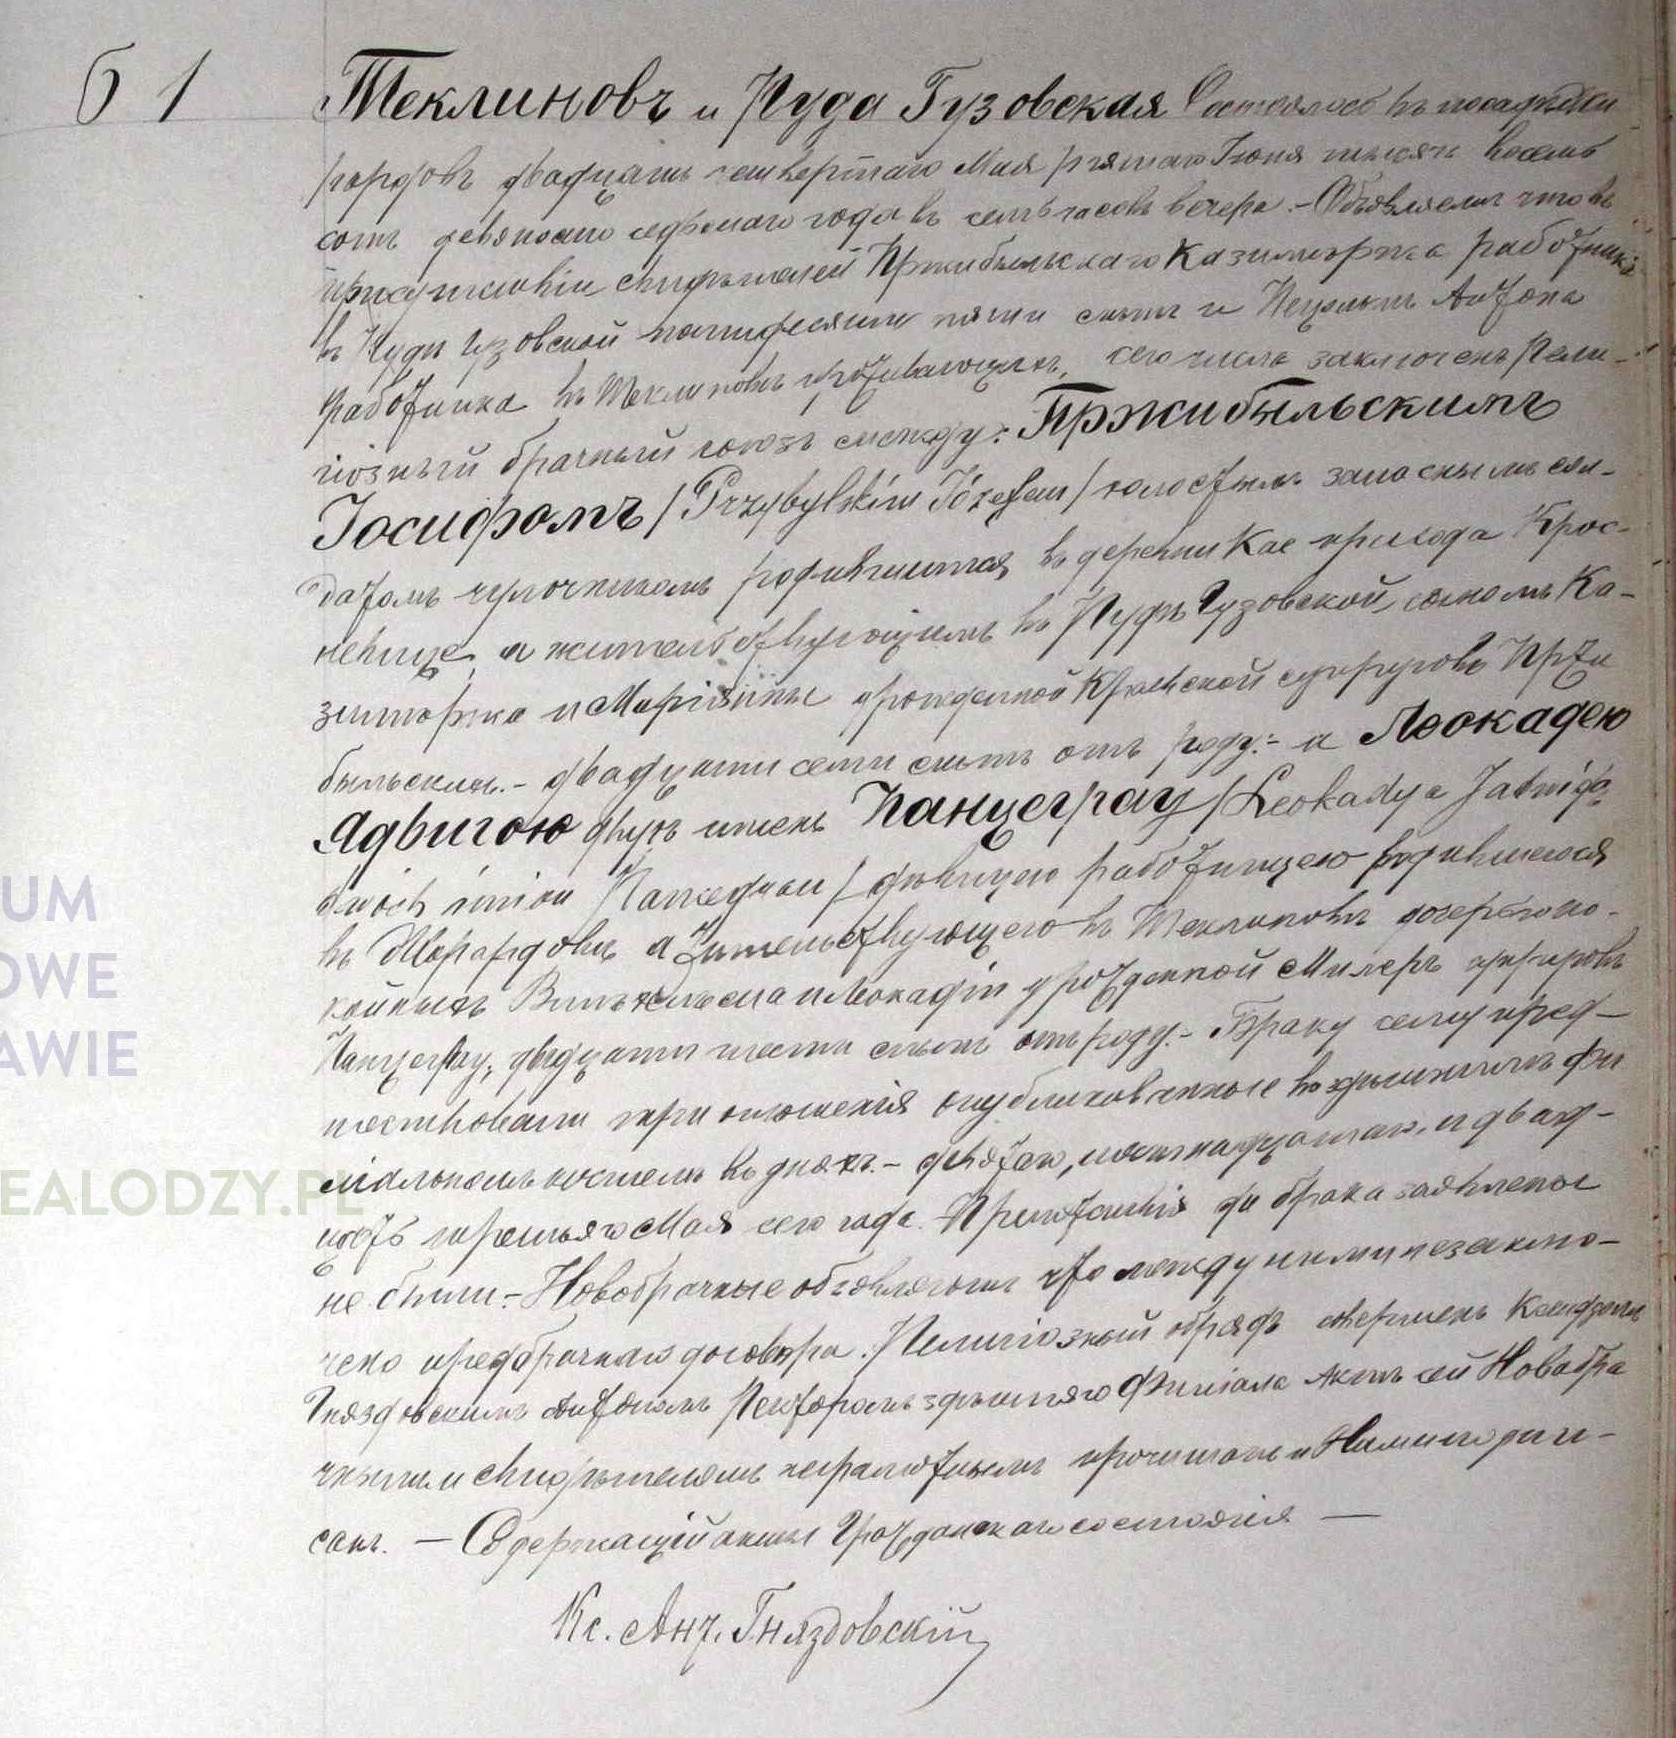 61
Теклиновъ и Руда Гузовская Состоялось въ посадѣ Жи-
рардовъ двадцать четвертаго Мая /пятаго Іюня тысяча восемь
сотъ девяносто седьмаго года въ семь часовъ вечера. – Объявляемъ что въ
присутствіи свидѣтелей Пржибыльскаго Казимержа работника
въ Руди Гузовской пятидесяти пяти лѣтъ и Антона
работника въ Теклиновѣ проживающихъ, сего числа заключенъ Рели-
гіозный брачный союзъ между: Пржибыльскимъ
Іосифомъ /Przybylskim Józefem/ холостымъ запаснымъ сол-
датомъ чулочникомъ родившимся въ деревни Кае прихода Крос-
невице, а жительствующимъ въ Рудѣ Гузовской, сыномъ Ка-
зимержа и Маріянны урожденной супруговъ Пржи
быльскихъ. – двадцати семи лѣтъ отъ роду: – и Леокадею
Ядвигою двухъ именъ Панцеграу /Leokadya Jadwiga
dwóch imion / дѣвицею работницею родившеюся
въ Жирардовѣ а жительствующею въ Теклиновѣ дочерью по-
койныхъ Вильгельма и Леокадіи урожденной Миллеръ супруговъ
Панцеграу, двадцати шести лѣтъ отъ роду. – Браку сему пред-
шествовали три оглашенія опубликованные въ здѣшнимъ Фи
ліальномъ костелѣ въ дняхъ. – девятаго, шестнадцатаго, и двад-
цать третьяго Мая сего года. Препятствія до брака заявлены
не были. – Новобрачные объявляютъ что между ними незаклю-
чено предбрачнаго договора. Религіозный обрядъ совершенъ Ксендзомъ
Гняздовскимъ Антономъ Ректоромъ здѣшняго Филіала Актъ сей Новобра
чнымъ и Свидѣтелямъ неграмотнымъ прочитанъ и Нами подпи-
санъ. – Содержащій акты Гражданскаго состоянія –
Кс. Ант. Гняздовскій
UM
OWE
AWIE
EALODZY.PL